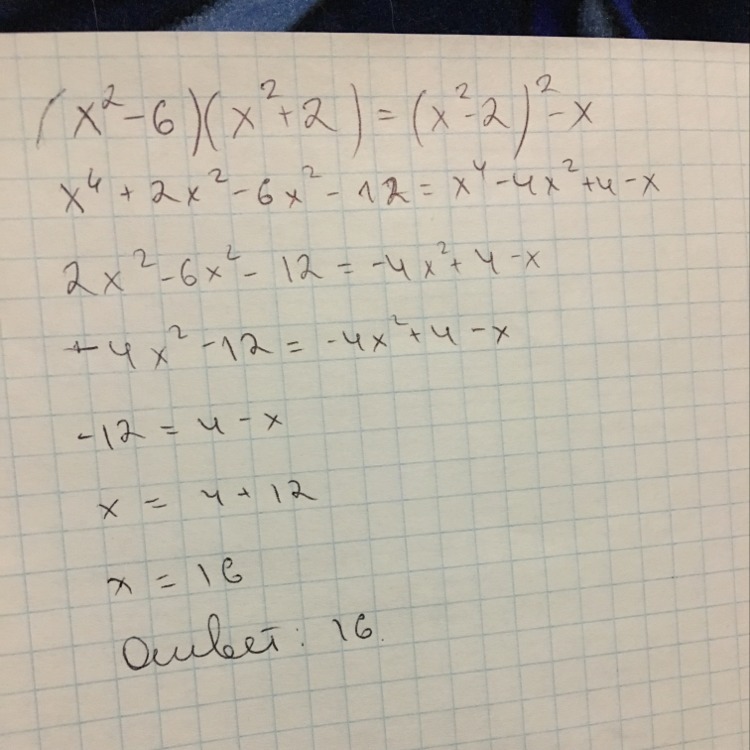 (x²-6)(x²+2)=(x²-2)²-x
x⁴+2x²-6x²-12=x⁴-4x²+4-x
2x²-6x²-12=-4x²+4-x
-4x²-12=-4x²+4-x
-12=4-x
x=4+12
x=16
Ответ: 16.